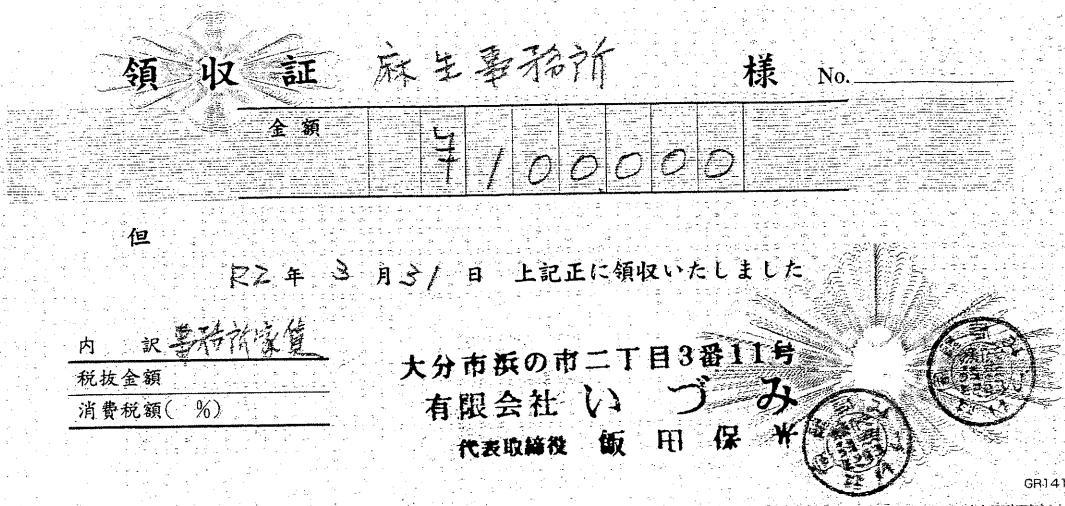 領収証 麻生事務所 様 No.
金額 ¥100000
但
R2年3月31日 上記正に領収いたしました
内訳 事務所家賃
税抜金額
消費税額( %)
大分市浜の市二丁目3番11号
有限会社 いづみ
代表取締役 飯田保
GR141